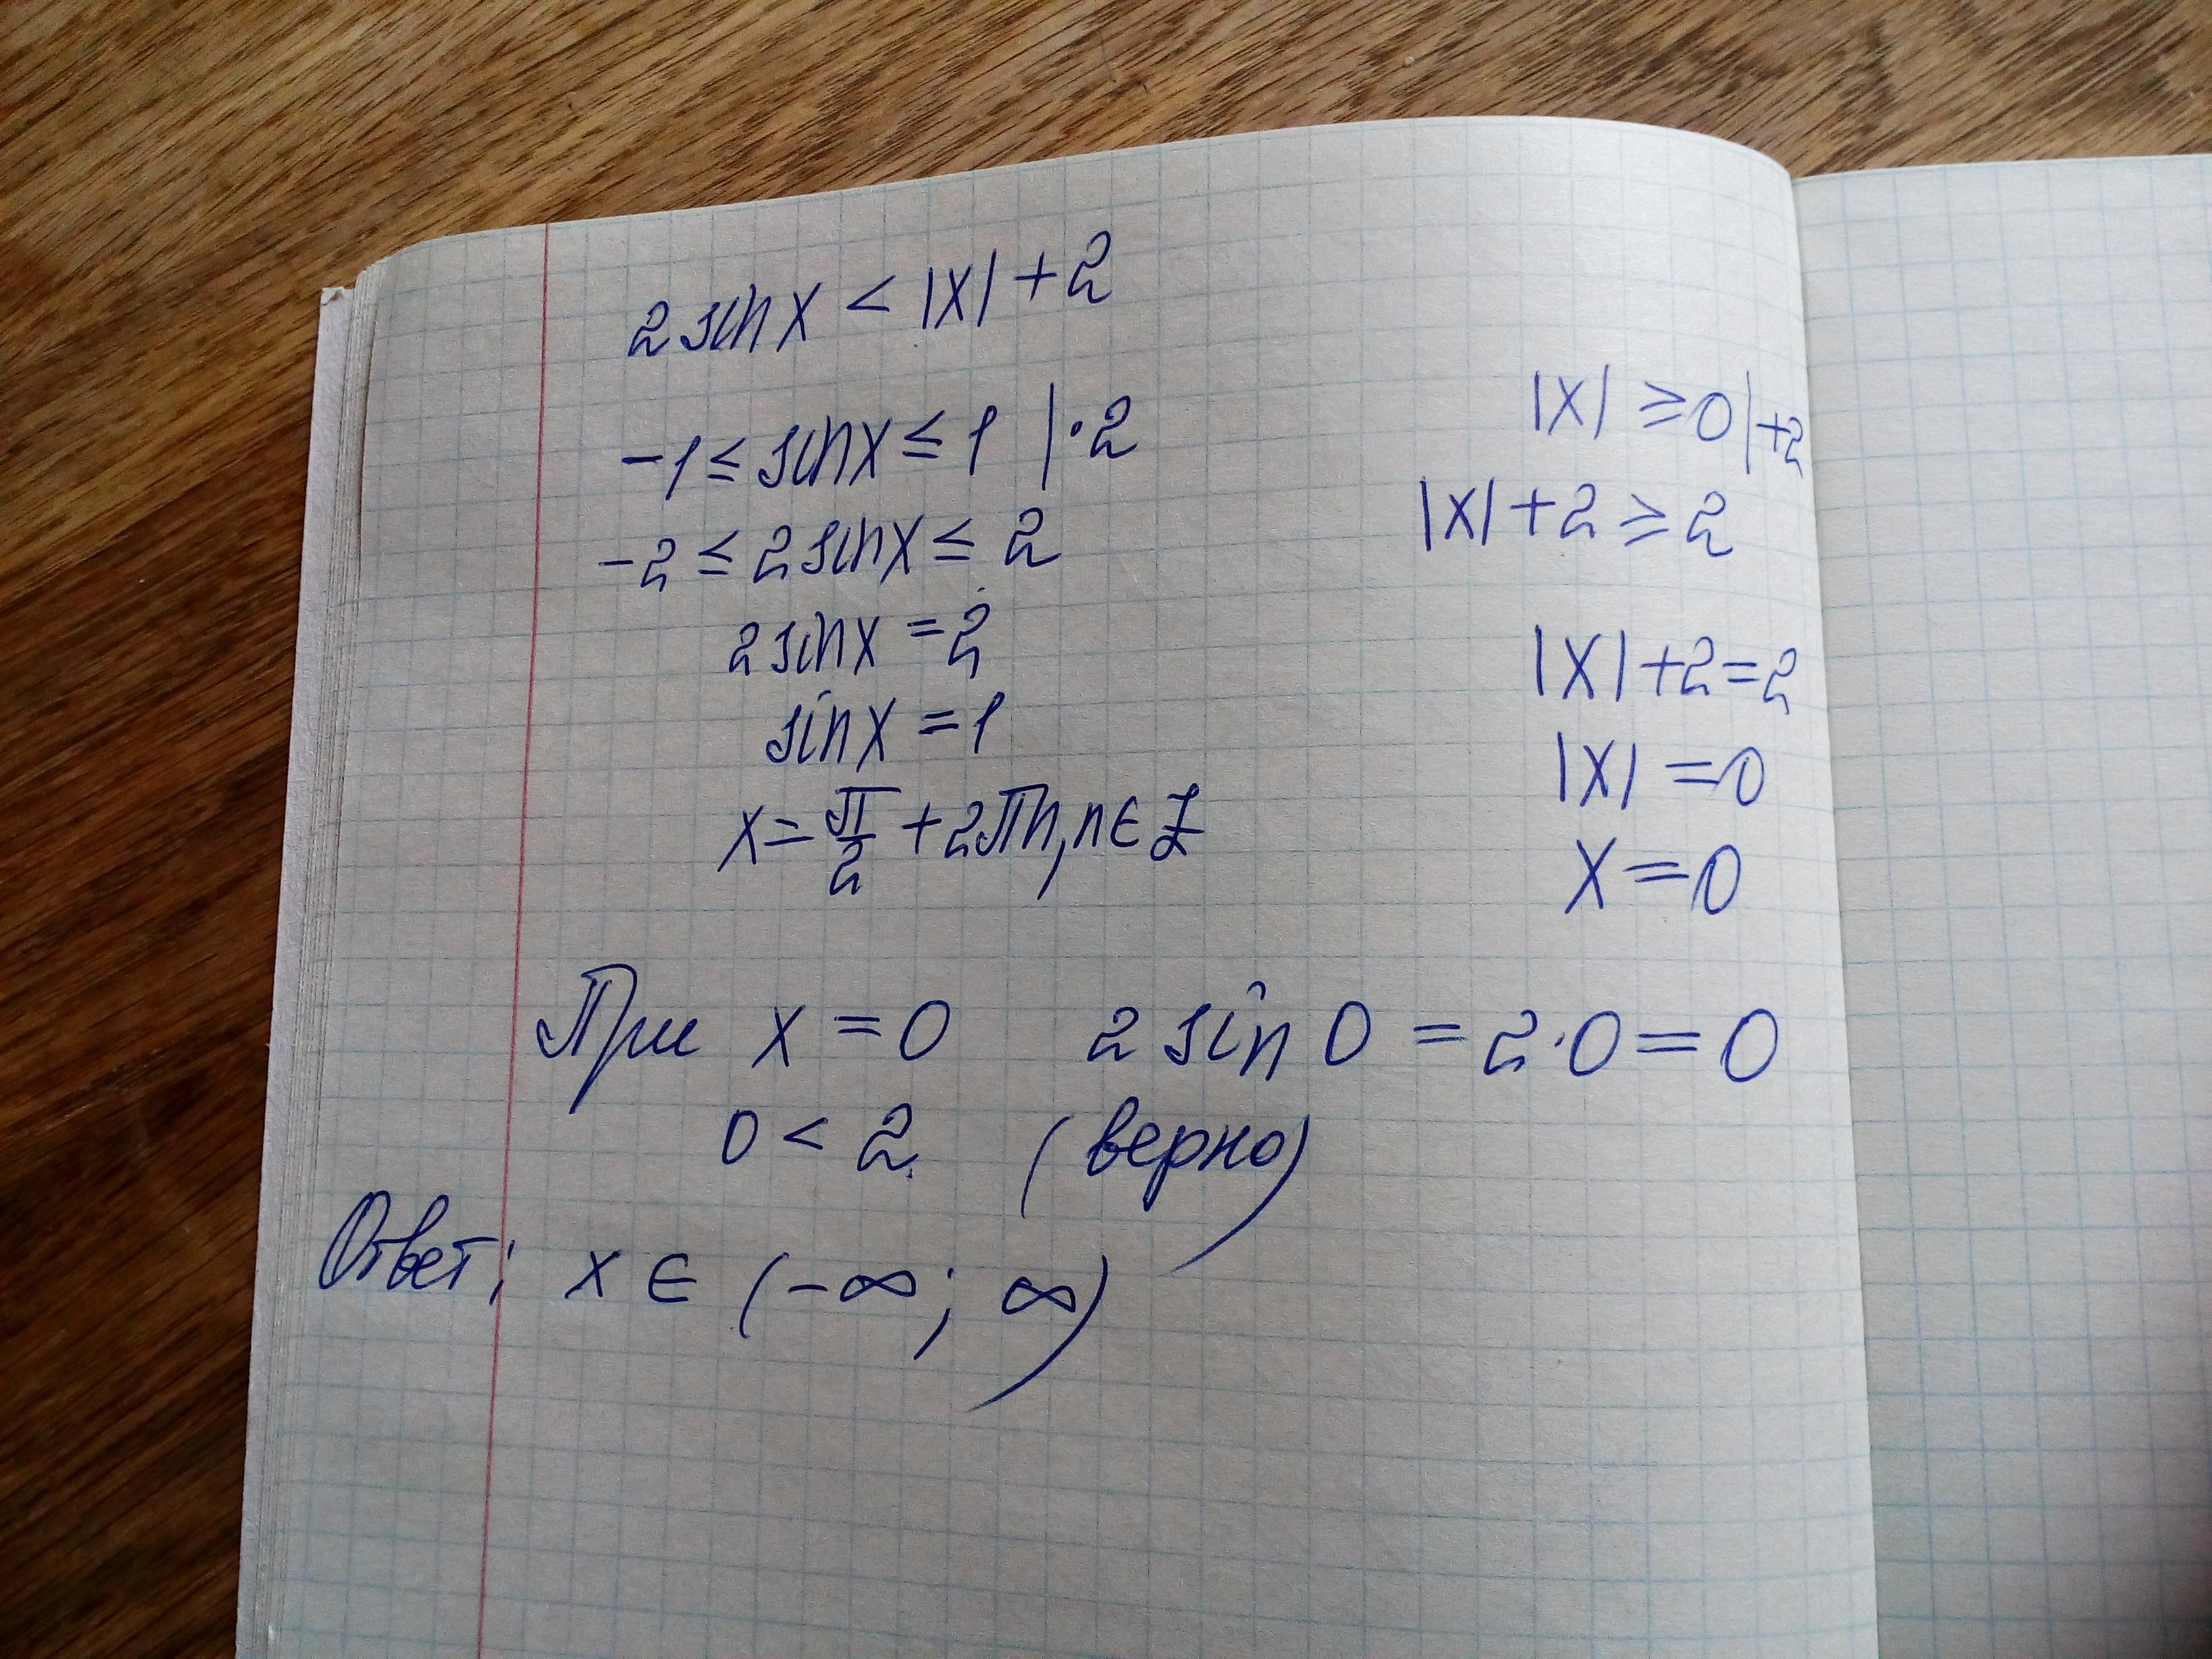 2sinx < |x| + 2
-1 ≤ sinx ≤ 1 | · 2
-2 ≤ 2sinx ≤ 2
2sinx = 2
sinx = 1
x = π/2 + 2πn, n ∈ Z
|x| ≥ 0 | +2
|x| + 2 ≥ 2
|x| + 2 = 2
|x| = 0
x = 0
При x = 0 2 sin 0 = 2 · 0 = 0
0 < 2 (верно)
Ответ: x ∈ (-∞; ∞)